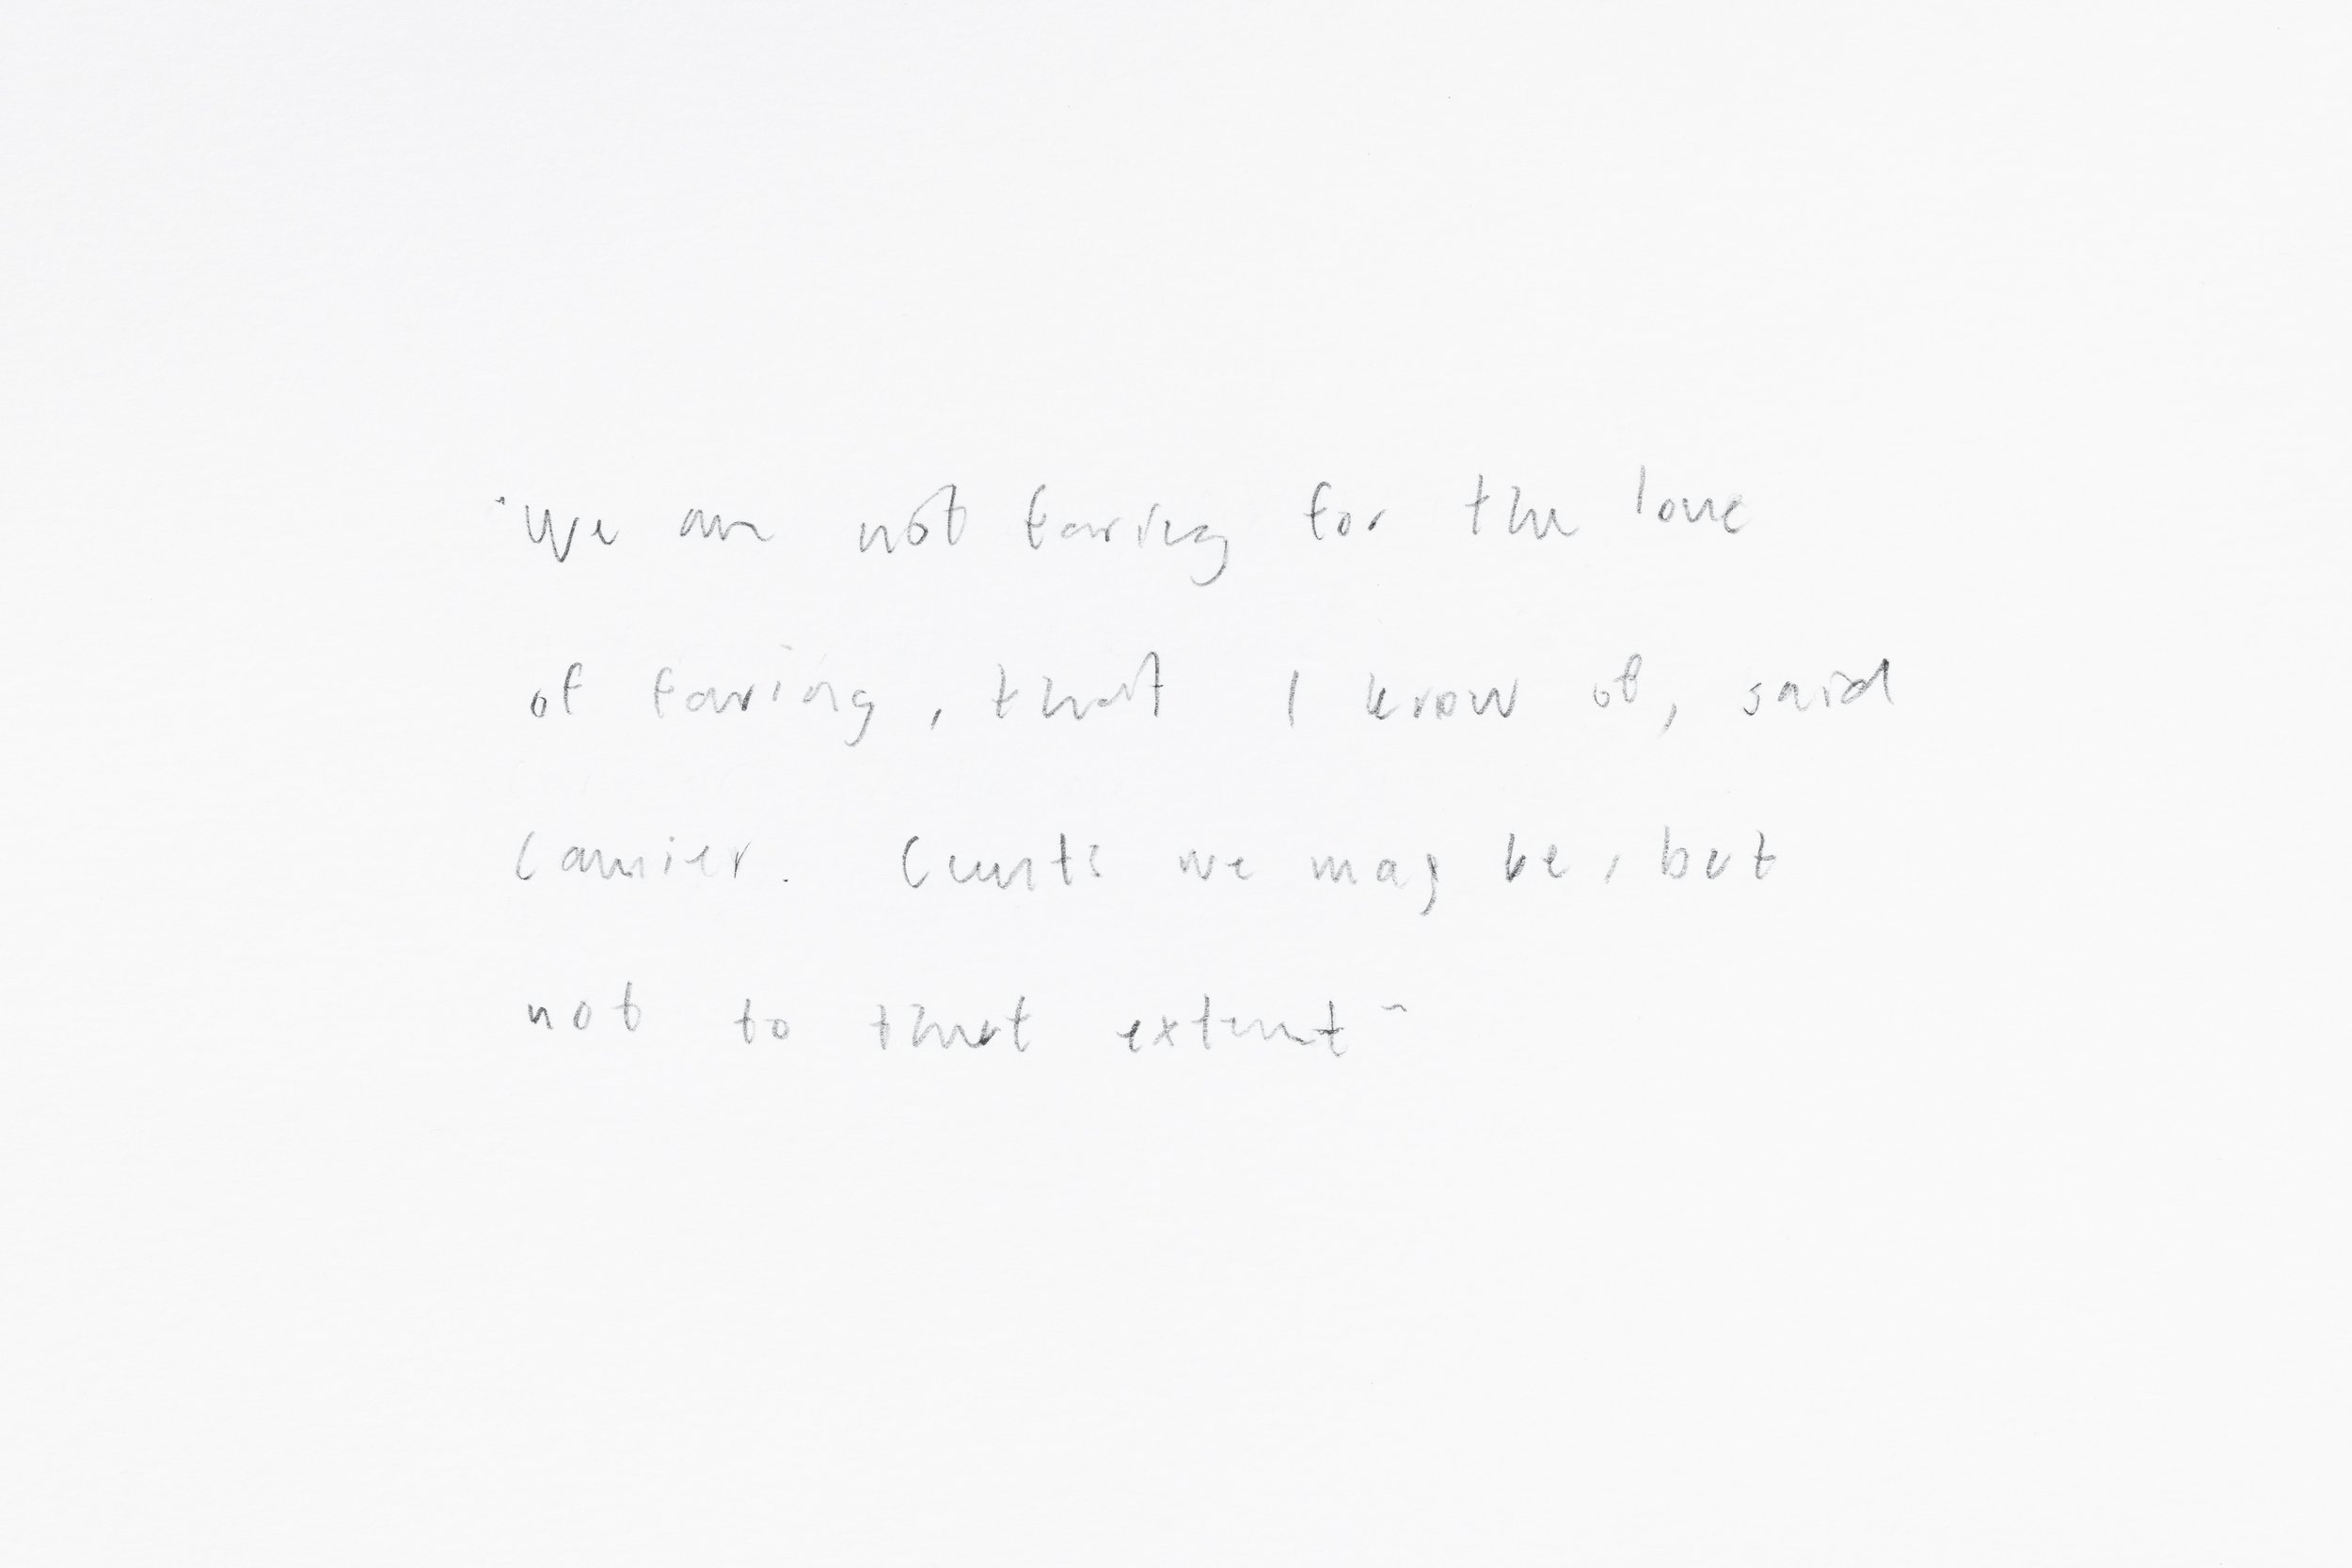 "We are not faring for the love
of faring, that I know of, said
Camier. Cunts we may be, but
not to that extent"